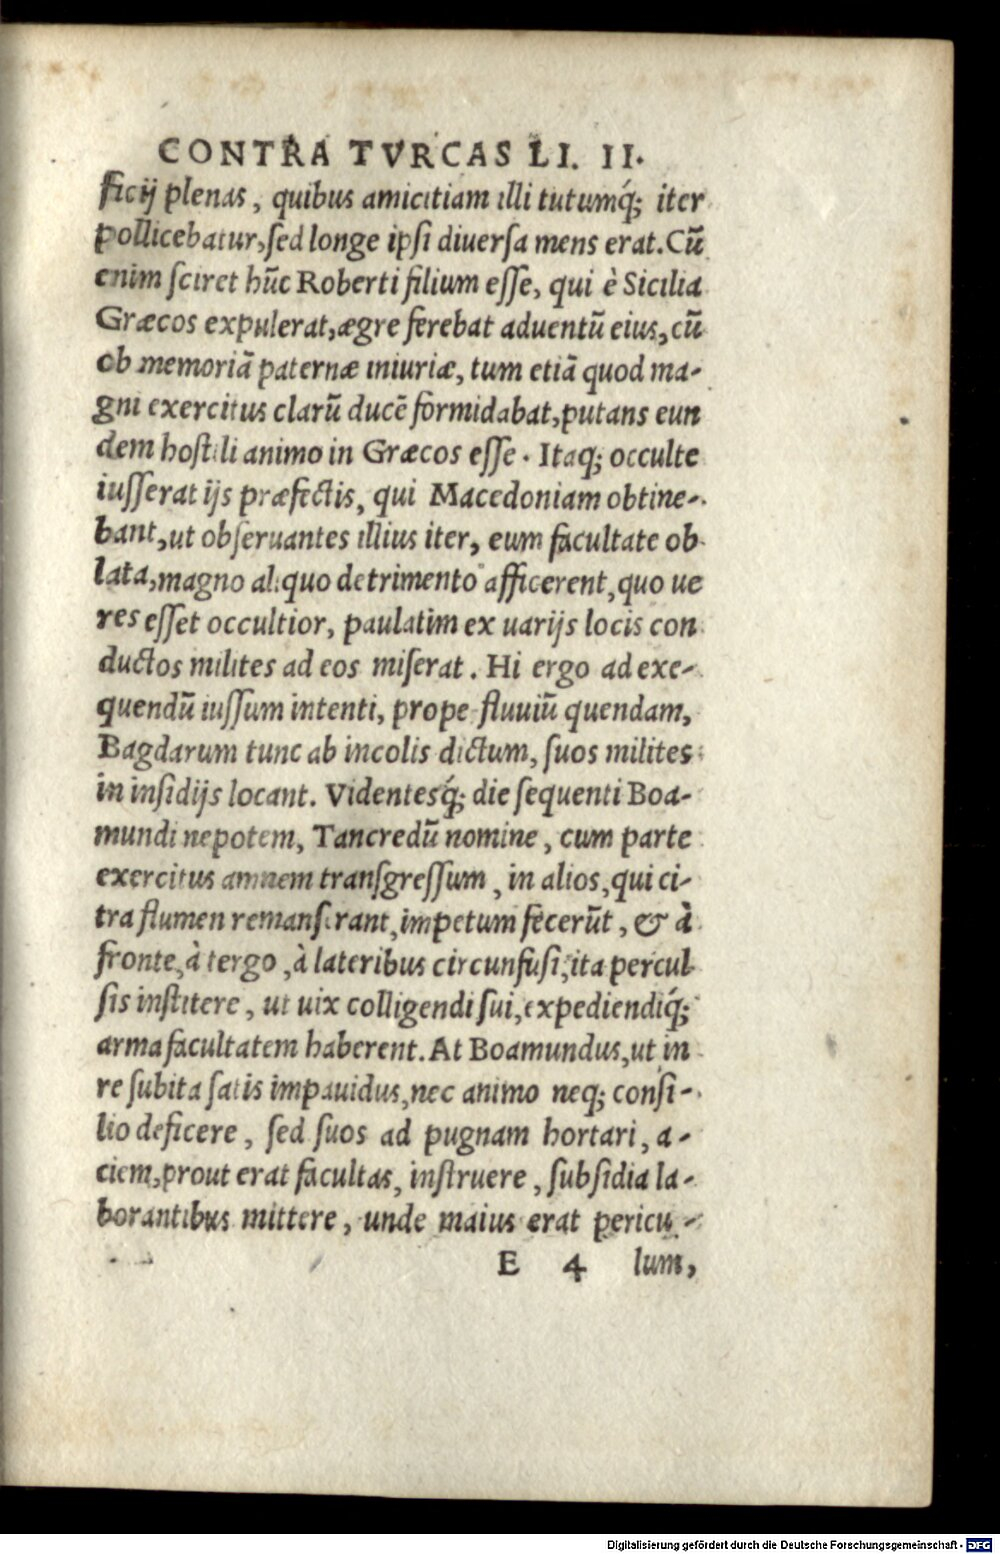 CONTRA TVRCAS LI. II.
ficij plenas, quibus amicitiam illi tutumq́; iter
pollicebatur, ſed longe ipſi diuerſa mens erat. Cū
enim ſciret hūc Roberti filium eſſe, qui è Sicilia
Græcos expulerat, ægre ferebat aduentū eius, cū
ob memoriā paternæ iniuriæ, tum etiā quod ma-
gni exercitus clarū ducē formidabat, putans eun
dem hoſtili animo in Græcos eſſe. Itaq; occulte
iuſſerat ijs præfectis, qui Macedoniam obtine-
bant, ut obſeruantes illius iter, eum facultate ob
lata, magno aliquo detrimento afficerent, quo ue
res eſſet occultior, paulatim ex uarijs locis con
ductos milites ad eos miſerat. Hi ergo ad exe-
quendū iuſſum intenti, prope fluuiū quendam,
Bagdarum tunc ab incolis dictum, ſuos milites
in inſidijs locant. Videntesq́; die ſequenti Boa-
mundi nepotem, Tancredū nomine, cum parte
exercitus amnem tranſgreſſum, in alios, qui ci-
tra flumen remanſerant, impetum fecerūt, & à
fronte, à tergo, à lateribus circunfuſi, ita percul
ſis inſtitere, ut uix colligendi ſui, expediendiq́;
arma facultatem haberent. At Boamundus, ut in
re ſubita ſatis impauidus, nec animo neq; conſi-
lio deficere, ſed ſuos ad pugnam hortari, a-
ciem, prout erat facultas, inſtruere, ſubſidia la-
borantibus mittere, unde maius erat pericu-
E 4 lum,
Digitalisierung gefördert durch die Deutsche Forschungsgemeinschaft - DFG